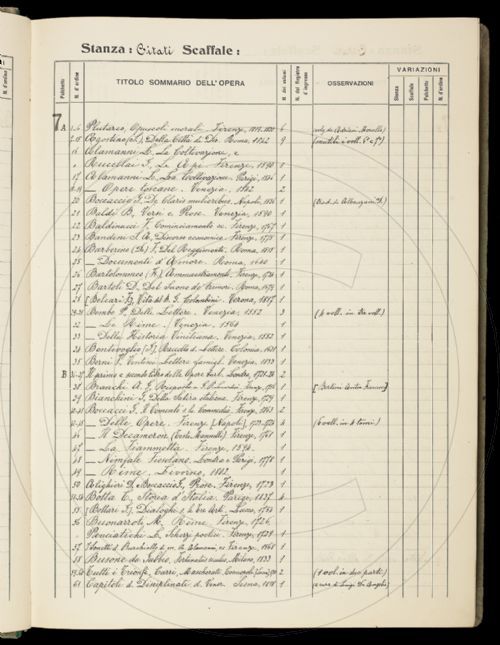 Stanza: Citati Scaffale:
VARIAZIONI
Palchetto N. d'ordine TITOLO SOMMARIO DELL'OPERA N. dei volumi N. del Registro d'ingresso OSSERVAZIONI Stanza Scaffale Palchetto N. d'ordine
7 A 1-6 Plutarco, Opuscoli morali. Firenze, 6
Agostino (S.), Della Città di Dio. Roma, 1842 9
16 Alamanni L. La Coltivazione, e
Rucellai G. Le Api. Firenze, 1590 1
17 Alamanni L. La Coltivazione. Parigi, 1
— Opere toscane. Venezia, 2
20 Boccaccio G. De Claris mulieribus. Napoli, 1836 1
21 Baldi B. Versi e Prose. Venezia, 1590 1
22 Baldinucci F. Cominciamento ec. Firenze, 1767 1
23 Bandini S. A. Discorso economico. Firenze, 1775 1
24 Barberino Del Reggimento. Roma, 1815 1
25 — Documenti d'Amore. Roma, 1640 1
26 Bartolommeo Ammaestramenti. Firenze, 1
27 Bartoli D. Del Suono de' tremori. Roma, 1679 1
28 [Belcari F.], Vita del B. G. Colombini. Verona, 1817 1
29-31 Bembo P. Delle Lettere. Venezia, 1552 3 (4 voll. in tre voll.)
32 — Le Rime. Venezia, 1564 1
33 — Della Historia Viniziana. Venezia, 1552 1
34 Bentivoglio Raccolta di Lettere. Colonia, 1631 1
35 Berni F. Lettere famigl. Venezia, 1833 1
B 36-37 Il primo e secondo libro delle Opere burl. Londra, 1721-24 2
38 Bianchi A. G. Risposta 1
39 Bianchini G. Della Satira italiana. Firenze, 1729 1
40-41 Boccacci G. Il Comento s. la Commedia. Firenze, 1863 2
— Delle Opere. Firenze [Napoli], 1723-1724 4 (6 voll. in 4 tomi)
46 — Il Decameron Firenze, 1761 1
47 — La Fiammetta. Firenze, 1594 1
48 — Ninfale Fiesolano. Londra e Parigi, 1778 1
49 — Rime. Livorno, 1802 1
50 Alighieri D. e Boccacci G. Prose. Firenze, 1723 1
51-54 Botta C. Storia d'Italia. Parigi, 1837 4
55 [Bottari G.], Dialoghi s. le tre Arti. Lucca, 1754 1
56 Buonarroti M. Rime. Firenze, 1726
Panciatichi L. Scherzi poetici. Firenze, 1729 1
57 Sonetti d. Burchiello Firenze 1568 1
58 Busone da Gubbio, Fortunatus siculus. Milano, 1833 1
59-60 Tutti i Trionfi, Carri, Mascherate 2 (1 vol. in due parti)
61 Capitoli d. Disciplinati d. Siena, 1818 1 a cura di Luigi De Angelis